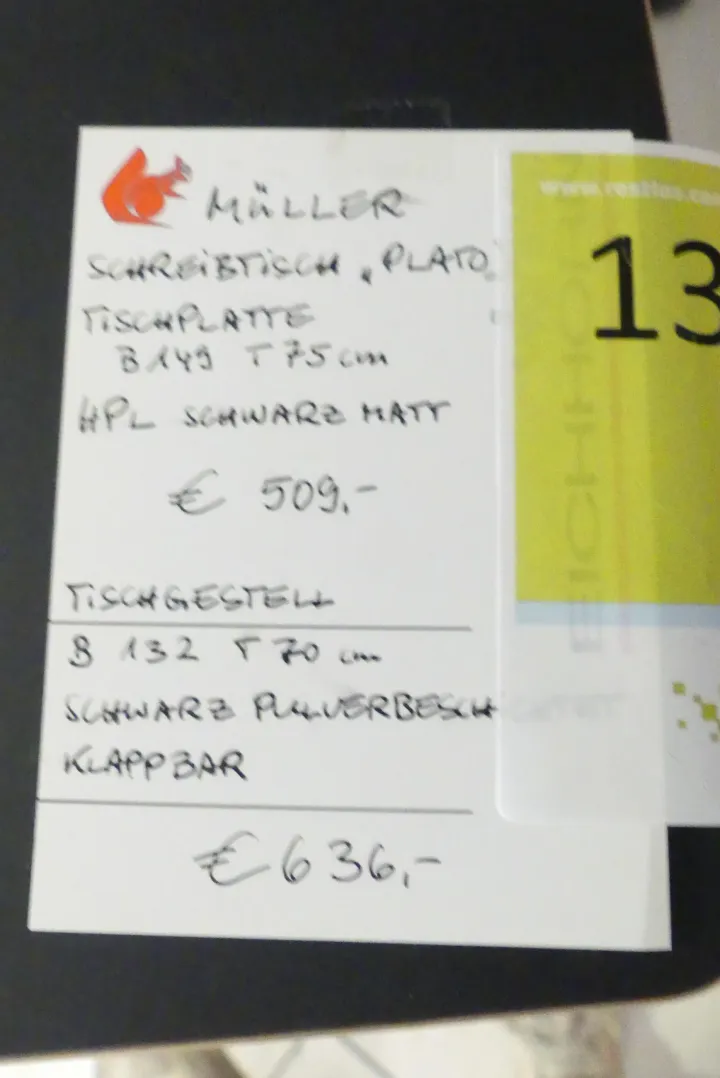 MÜLLER
SCHREIBTISCH „PLATO
TISCHPLATTE
B 149 T 75 cm
HPL SCHWARZ MATT
€ 509,-
TISCHGESTELL
B 132 T 70 cm
SCHWARZ PULVERBESCHICHTET
KLAPPBAR
€ 636,-
13
EICHHORN